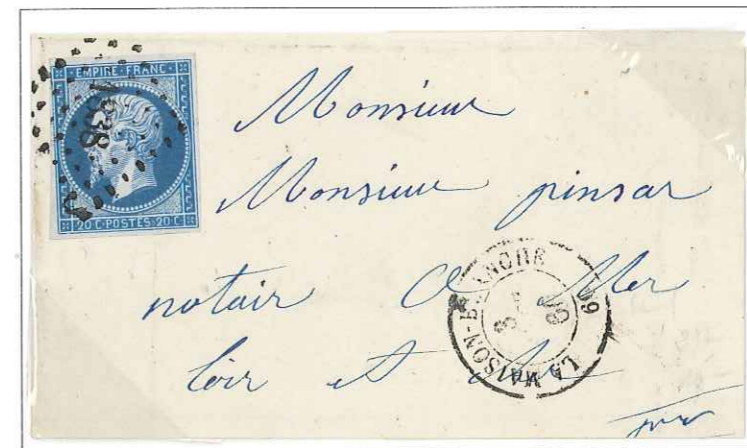 EMPIRE·FRANC
1638
20·C·POSTES·20·C
Monsieur
Monsieur pinsar
notair a Mer
loir et cher
LA MAISON-BLANCHE
60